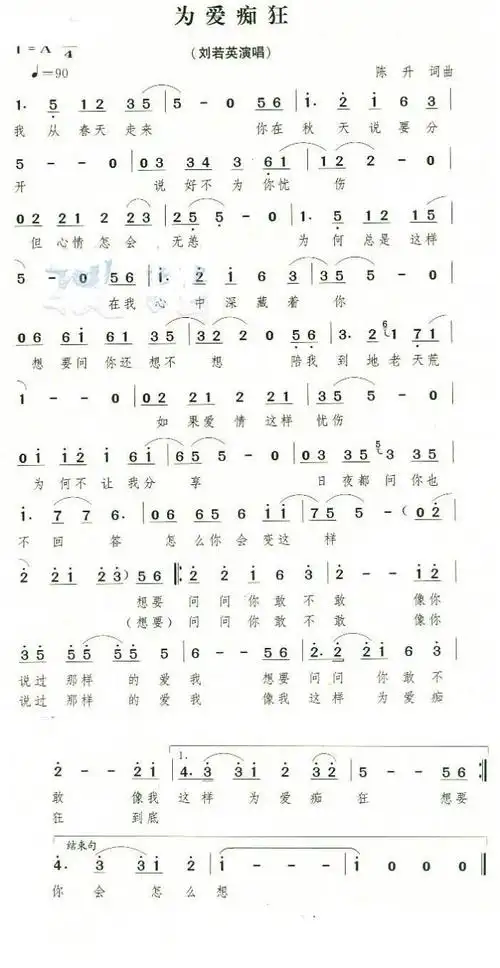 为爱痴狂
1=A 4
(刘若英演唱)
♩=90
陈升 词曲
1. 5 12 35 | 5 - 0 56 | i. 2 i 6 63 |
我 从 春天 走来 你在 秋 天 说 要 分
5 - - 0 | 03 34 3 61 | 12 2 - 0 |
开 说 好不 为 你忧 伤
02 21 2 23 | 25 5 - 0 | 1. 5 12 15 |
但 心情 怎会 无恙 为 何 总是 这样
5 - 0 56 | i. 2 i 6 3 | 35 5 - 0 |
在我 心 中 深 藏 着 你
06 66 6i 61 35 | 32 2 0 56 | 3. 2 1 71 |
想 要问 你还 想不 想 陪我 到 地老 天荒
1 - - 0 | 02 21 2 21 | 35 5 - 0 |
如 果爱 情 这样 忧伤
0i i2 i 6i | 65 5 - 0 | 03 35 3 35 |
为 何不 让 我分 享 日 夜都 问 你也
i. 7 7 6. | 06 65 6 ii | 75 5 - (02 |
不 回 答 怎么 你 会 变这 样
2 2i 23) 56 |: 2 2 i 6 3 | 2 - - i2 |
想要 问 问 你 敢 不 敢 像你
(想要) 问 问 你 敢 不 敢 像你
35 55 55 5 6 | i - 0 56 | 2. 2 2i 6 3 |
说过 那样 的 爱 我 想要 问 问 你 敢 不
说过 那样 的 爱 我 像我 这 样 为 爱 痴
1.
2 - - 2i | 4. 3 3i 2 32 | 5 - - 56 :|
敢 像我 这 样 为 爱 痴 狂 想要
狂 到底
结束句
4. 3 3i 2 | i - - - | i 0 0 0 :‖
你 会 怎么 想